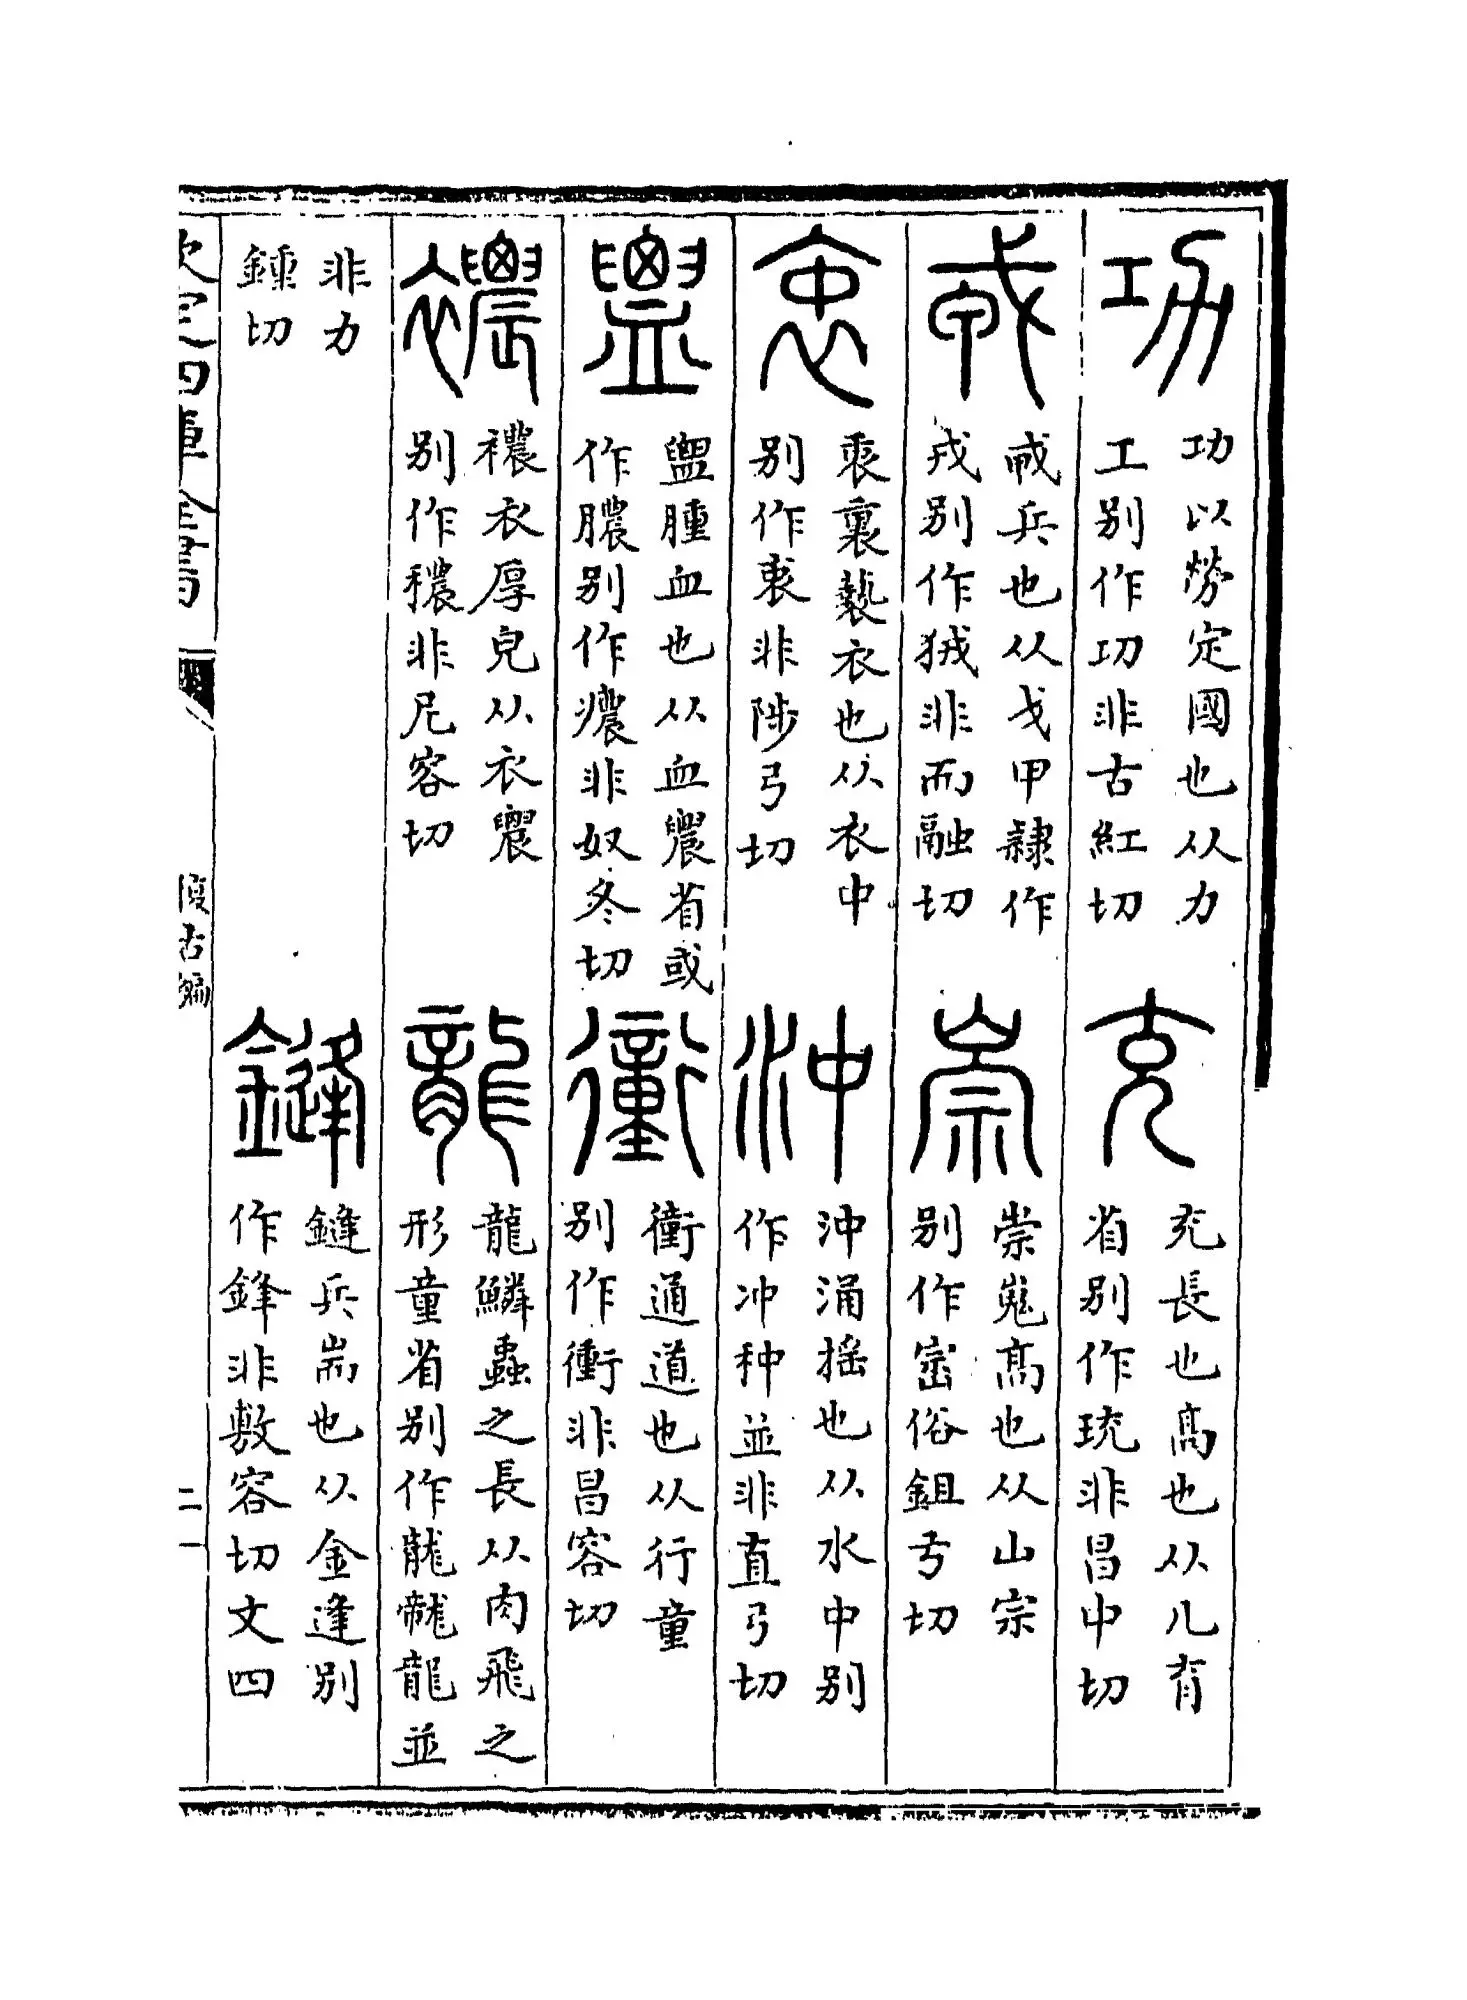 功
功以勞定國也从力
工别作㓛非古紅切
充
充長也髙也从儿育
省别作珫非昌中切
戎
𢦦兵也从戈甲隷作
戎别作狨非而融切
崇
崇嵬髙也从山宗
别作崈俗鉏弓切
衷
衷裏褻衣也从衣中
别作衷非陟弓切
沖
沖涌揺也从水中别
作冲种並非直弓切
盥
盥腫血也从血農省或
作膿别作癑非奴冬切
衝
衝通道也从行童
别作衝非昌容切
襛
襛衣厚皃从衣農
别作穠非尼容切
龍
龍鱗蟲之長从肉飛之
形童省别作龍並
非力
鍾切
鏠
鏠兵耑也从金逢别
作鋒非敷容切文四
欽定四庫全書
復古編
二